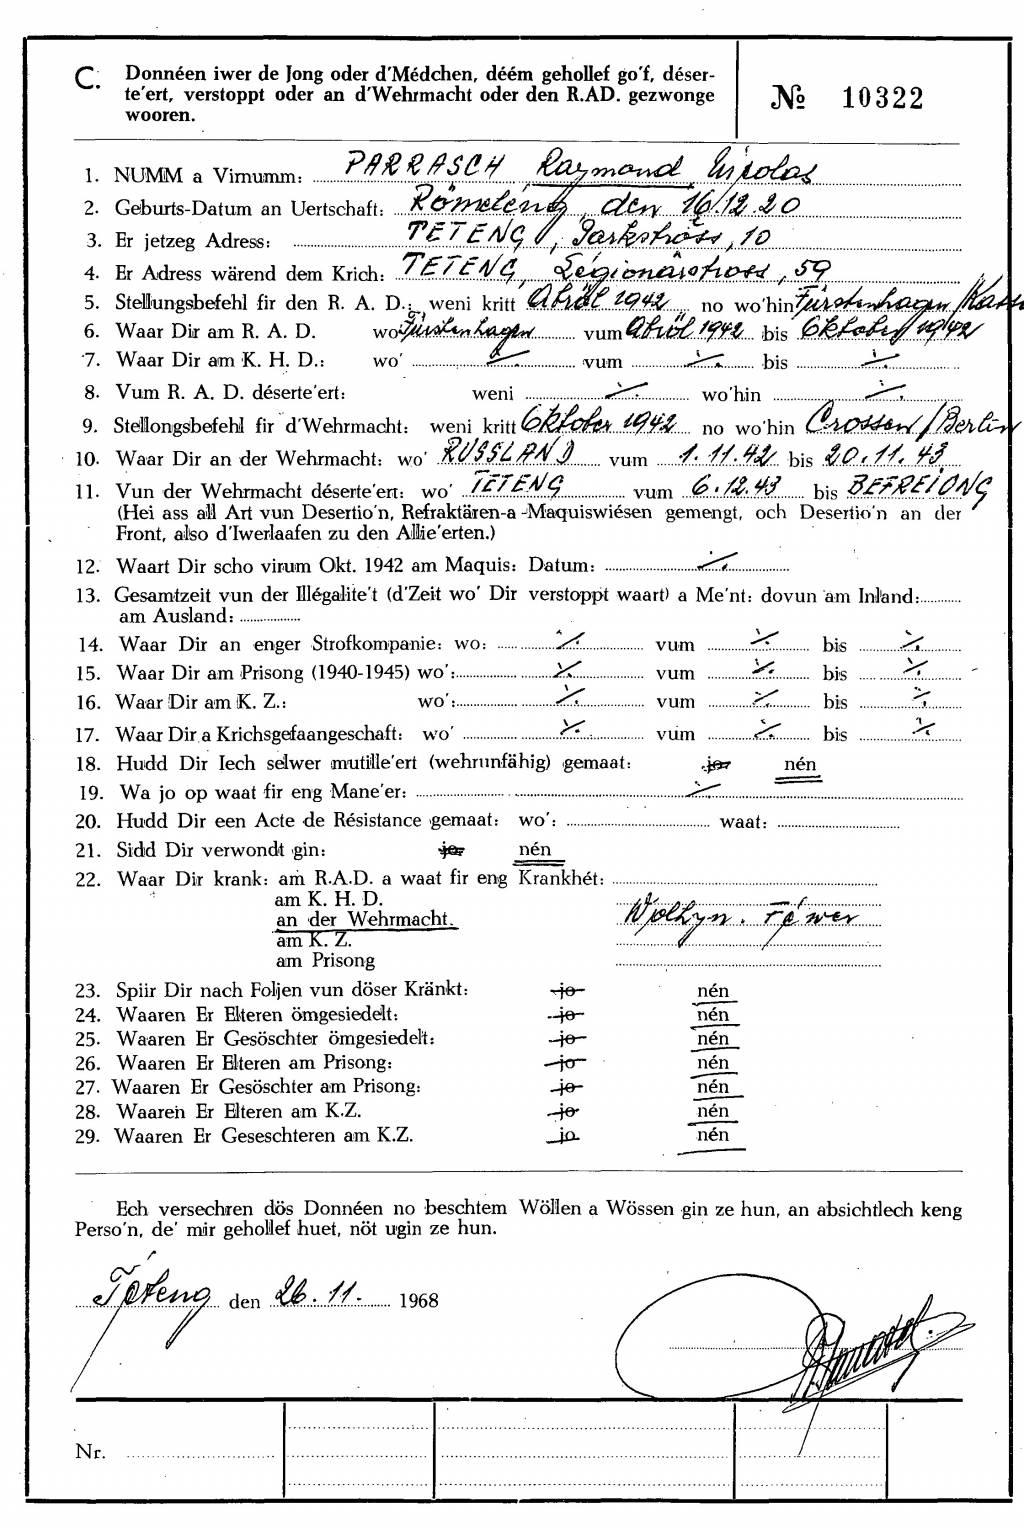 C. Donnéen iwer de Jong oder d'Médchen, déém gehollef go'f, déser-
te'ert, verstoppt oder an d'Wehrmacht oder den R.AD. gezwonge
wooren.
№ 10322
1. NUMM a Virnumm: PARRASCH Raymond, Nicolas
2. Geburts-Datum an Uertschaft: Römeléng, den 16.12.20
3. Er jetzeg Adress: TETENG, Parkströss, 10
4. Er Adress wärend dem Krich: TETENG, Légionärstross, 59
5. Stellungsbefehl fir den R. A. D.: weni kritt Abröl 1942 no wo'hin Fürstenhagen/Kasse
6. Waar Dir am R. A. D. wo Fürstenhagen vum Abröl 1942 bis Oktober 1942
7. Waar Dir am K. H. D.: wo' ./. vum ./. bis ./.
8. Vum R. A. D. déserte'ert: weni ./. wo'hin ./.
9. Stellongsbefehl fir d'Wehrmacht: weni kritt Oktober 1942 no wo'hin Crossen/Berlin
10. Waar Dir an der Wehrmacht: wo' RUSSLAND vum 1.11.42 bis 20.11.43
11. Vun der Wehrmacht déserte'ert: wo' TETENG vum 6.12.43 bis BEFREIONG
(Hei ass all Art vun Desertio'n, Refraktären-a-Maquiswiésen gemengt, och Desertio'n an der
Front, also d'Iwerlaafen zu den Allie'erten.)
12. Waart Dir scho virum Okt. 1942 am Maquis: Datum: ./.
13. Gesamtzeit vun der Illégalite't (d'Zeit wo' Dir verstoppt waart) a Me'nt: dovun am Inland:
am Ausland:
14. Waar Dir an enger Strofkompanie: wo: ./. vum ./. bis ./.
15. Waar Dir am Prisong (1940-1945) wo': ./. vum ./. bis ./.
16. Waar Dir am K. Z.: wo': ./. vum ./. bis ./.
17. Waar Dir a Krichsgefaangeschaft: wo' ./. vum ./. bis ./.
18. Hudd Dir Iech selwer mutille'ert (wehrunfähig) gemaat: jo, nén
19. Wa jo op waat fir eng Mane'er: ./.
20. Hudd Dir een Acte de Résistance gemaat: wo': waat:
21. Sidd Dir verwondt gin: jo, nén
22. Waar Dir krank: am R.A.D. a waat fir eng Krankhét:
am K. H. D.
an der Wehrmacht. Wolhyn. Féwer
am K. Z.
am Prisong
23. Spiir Dir nach Foljen vun döser Kränkt: jo nén
24. Waaren Er Elteren ömgesiedelt: jo nén
25. Waaren Er Gesöschter ömgesiedelt: jo nén
26. Waaren Er Elteren am Prisong: jo nén
27. Waaren Er Gesöschter am Prisong: jo nén
28. Waaren Er Elteren am K.Z. jo nén
29. Waaren Er Geseschteren am K.Z. jo nén
Ech versechren dös Donnéen no beschtem Wöllen a Wössen gin ze hun, an absichtlech keng
Perso'n, de' mir gehollef huet, nöt ugin ze hun.
Téteng den 26.11. 1968
Nr.